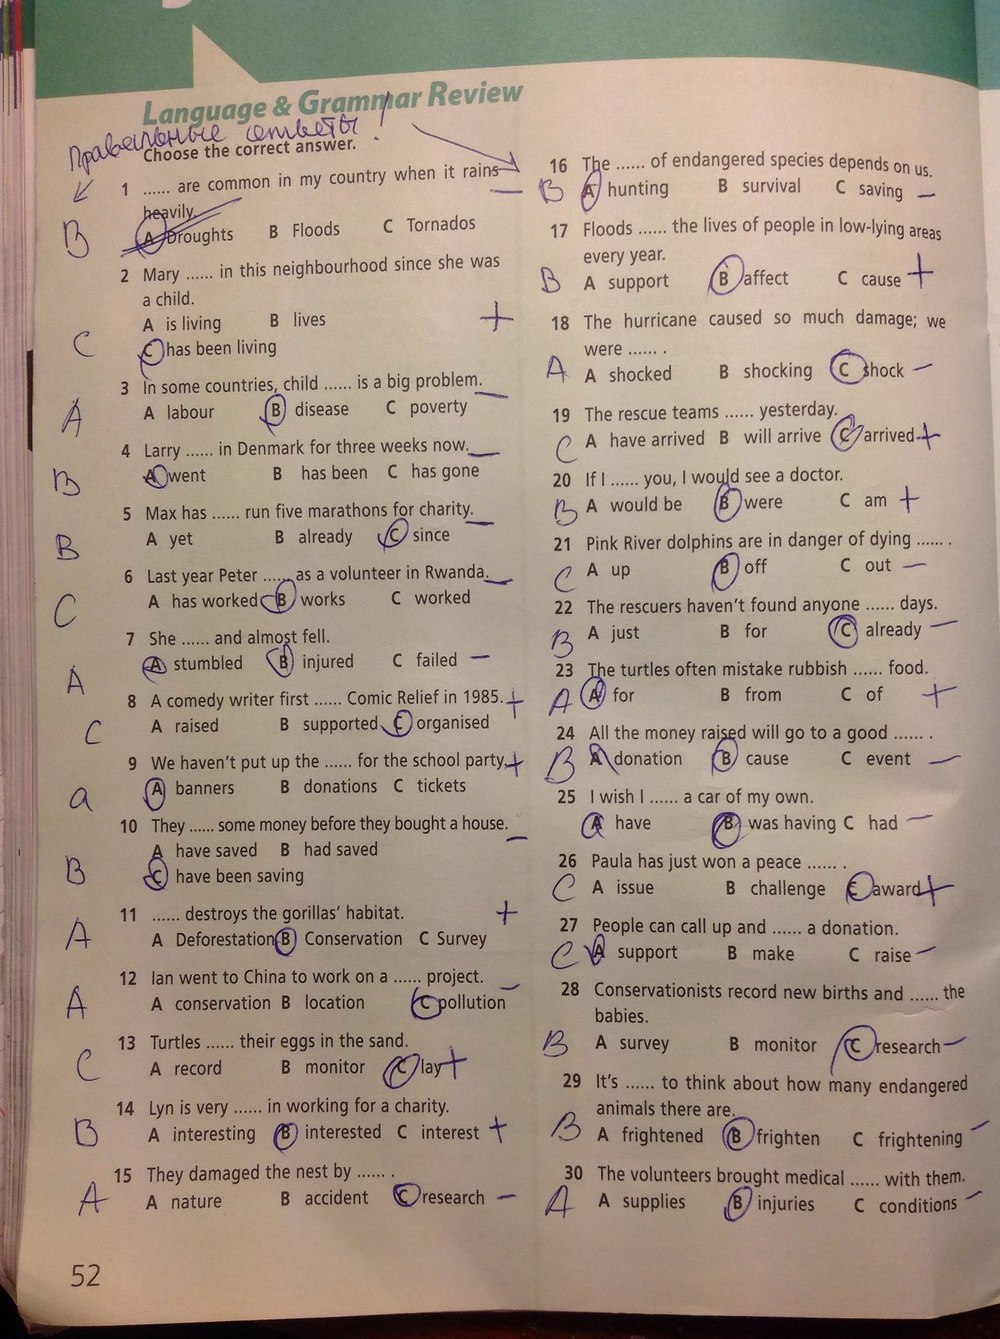 Language & Grammar Review
Правельные ответы!
Choose the correct answer.
1 ...... are common in my country when it rains —
heavily.
B A Droughts B Floods C Tornados
2 Mary ...... in this neighbourhood since she was
a child.
A is living B lives +
C C has been living
3 In some countries, child ...... is a big problem. —
A A labour B disease C poverty
4 Larry ...... in Denmark for three weeks now. —
B A went B has been C has gone
5 Max has ...... run five marathons for charity. —
B A yet B already C since
6 Last year Peter ...... as a volunteer in Rwanda. —
C A has worked B works C worked
7 She ...... and almost fell.
A A stumbled B injured C failed —
8 A comedy writer first ...... Comic Relief in 1985. +
C A raised B supported C organised
9 We haven't put up the ...... for the school party. +
a A banners B donations C tickets
10 They ...... some money before they bought a house. —
A have saved B had saved
B C have been saving
11 ...... destroys the gorillas' habitat. +
A A Deforestation B Conservation C Survey
12 Ian went to China to work on a ...... project. —
A A conservation B location C pollution
13 Turtles ...... their eggs in the sand.
C A record B monitor C lay +
14 Lyn is very ...... in working for a charity.
B A interesting B interested C interest +
15 They damaged the nest by ...... .
A A nature B accident C research —
52
16 The ...... of endangered species depends on us.
B A hunting B survival C saving —
17 Floods ...... the lives of people in low-lying areas
every year.
B A support B affect C cause +
18 The hurricane caused so much damage; we
were ...... .
A A shocked B shocking C shock —
19 The rescue teams ...... yesterday.
C A have arrived B will arrive C arrived +
20 If I ...... you, I would see a doctor.
B A would be B were C am +
21 Pink River dolphins are in danger of dying ...... .
C A up B off C out —
22 The rescuers haven't found anyone ...... days.
B A just B for C already —
23 The turtles often mistake rubbish ...... food.
A A for B from C of +
24 All the money raised will go to a good ...... .
B A donation B cause C event —
25 I wish I ...... a car of my own.
A have B was having C had —
26 Paula has just won a peace ...... .
C A issue B challenge C award +
27 People can call up and ...... a donation.
C A support B make C raise —
28 Conservationists record new births and ...... the
babies.
B A survey B monitor C research —
29 It's ...... to think about how many endangered
animals there are.
B A frightened B frighten C frightening —
30 The volunteers brought medical ...... with them.
A A supplies B injuries C conditions —